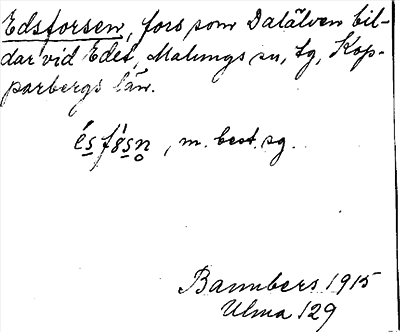 Edsforsen, fors som Dalälven bil-
dar vid Edet, Malungs sn, tg, Kop-
parbergs län.
, m. best. sg.
Bannbers 1915
Ulma 129